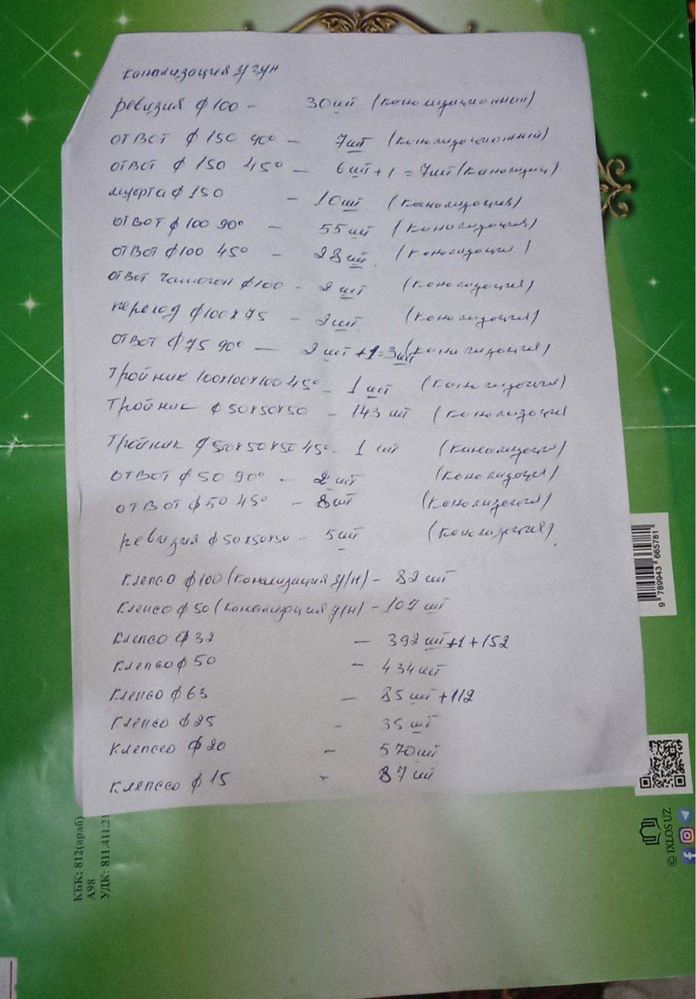 Канализация учун
ревизия ф100 - 30 шт (канолизационний)
отвот ф 150 90° - 7 шт (канолизоционний)
отвот ф 150 45° - 6 шт + 1 = 7 шт (канолизац)
муфта ф 150 - 10 шт (канолизоция)
отвот ф 100 90° - 55 шт (канолизоция)
отвот ф 100 45° - 28 шт. (канолизоция)
отвот ф 100 - 2 шт (канолизоция)
переход ф 100х75 - 2 шт (канолизоция)
отвот ф 75 90° - 2 шт + 1 = 3 шт (канолизоция)
Тройник 100х100х100 45° - 1 шт (канолизоция)
Тройник ф 50х50х50 - 143 шт (канолизоция)
Тройник ф 50х50х50 45° - 1 шт (канолизоция)
отвот ф 50 90° - 2 шт (канолизоция)
отвот ф 50 45° - 8 шт (канолизоция)
ревизия ф 50х50х50 - 5 шт (канлизоция)
Клепсо ф 100 (канализация у/н) - 82 шт
Клепсо ф 50 (канализация у/н) - 107 шт
Клепсо ф 32 - 392 шт + 1 + 152
Клепсо ф 50 - 434 шт
Клепсо ф 63 - 85 шт + 112
Клепсо ф 25 - 35 шт
Клепссо ф 20 - 570 шт
Клепссо ф 15 - 87 шт
9 789943 665781
© IXLOS UZ
КБК: 812(араб)
А98
УДК: 811.411.21